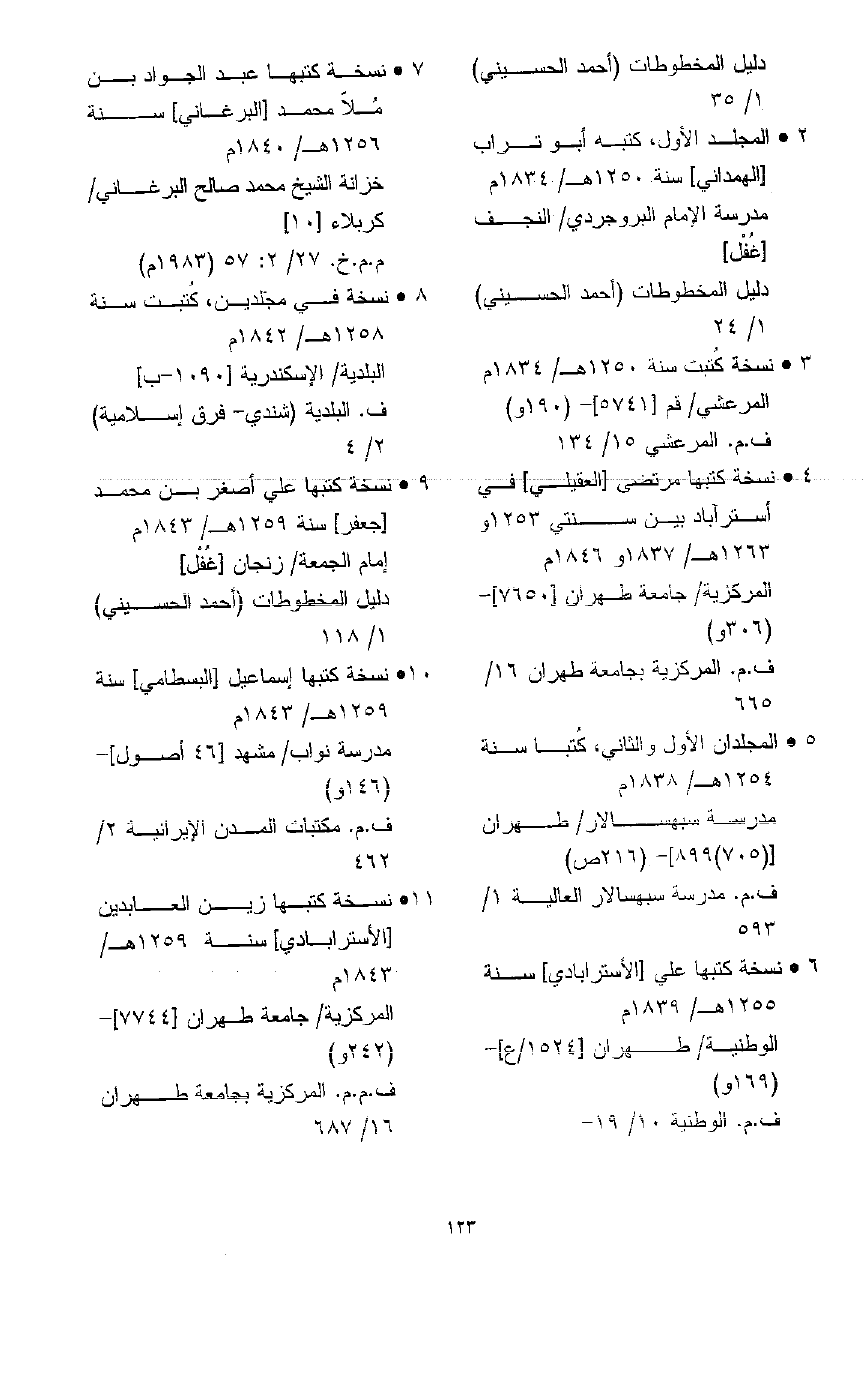 دليل المخطوطات (أحمد الحسيني)
١/ ٣٥
٢ • المجلد الأول، كتبه أبو تراب
[الهمداني] سنة ١٢٥٠هـ/ ١٨٣٤م
مدرسة الإمام البروجردي/ النجف
[غُفْل]
دليل المخطوطات (أحمد الحسيني)
١/ ٢٤
٣ • نسخة كُتبت سنة ١٢٥٠هـ/ ١٨٣٤م
المرعشي/ قم [٥٧٤١]- (١٩٠و)
ف.م. المرعشي ١٥/ ١٣٤
٤ • نسخة كتبها مرتضى [العقيلي] في
أسترآباد بين سنتي ١٢٥٣و
١٢٦٣هـ/ ١٨٣٧و ١٨٤٦م
المركزية/ جامعة طهران [٧٦٥٠]-
(٣٠٦و)
ف.م. المركزية بجامعة طهران ١٦/
٦٦٥
٥ • المجلدان الأول والثاني، كُتبا سنة
١٢٥٤هـ/ ١٨٣٨م
مدرسة سبهسالار/ طهران
[(٧٠٥)٨٩٩]- (٢١٦ص)
ف.م. مدرسة سبهسالار العالية ١/
٥٩٣
٦ • نسخة كتبها علي [الأسترابادي] سنة
١٢٥٥هـ/ ١٨٣٩م
الوطنية/ طهران [١٥٢٤/ع]-
(١٦٩و)
ف.م. الوطنية ١٠/ ١٩-
٧ • نسخة كتبها عبد الجواد بن
مُلاّ محمد [البرغاني] سنة
١٢٥٦هـ/ ١٨٤٠م
خزانة الشيخ محمد صالح البرغاني/
كربلاء [١٠]
م.م.خ. ٢٧/ ٢: ٥٧ (١٩٨٣م)
٨ • نسخة في مجلدين، كُتبت سنة
١٢٥٨هـ/ ١٨٤٢م
البلدية/ الإسكندرية [١٠٩٠-ب]
ف. البلدية (شندي- فرق إسلامية)
٢/ ٤
٩ • نسخة كتبها علي أصغر بن محمد
[جعفر] سنة ١٢٥٩هـ/ ١٨٤٣م
إمام الجمعة/ زنجان [غُفْل]
دليل المخطوطات (أحمد الحسيني)
١/ ١١٨
١٠• نسخة كتبها إسماعيل [البسطامي] سنة
١٢٥٩هـ/ ١٨٤٣م
مدرسة نواب/ مشهد [٤٦ أصول]-
(١٤٦و)
ف.م. مكتبات المدن الإيرانية ٢/
٤٦٢
١١• نسخة كتبها زين العابدين
[الأسترابادي] سنة ١٢٥٩هـ/
١٨٤٣م
المركزية/ جامعة طهران [٧٧٤٤]-
(٢٤٢و)
ف.م.م. المركزية بجامعة طهران
١٦/ ٦٨٧
١٢٣